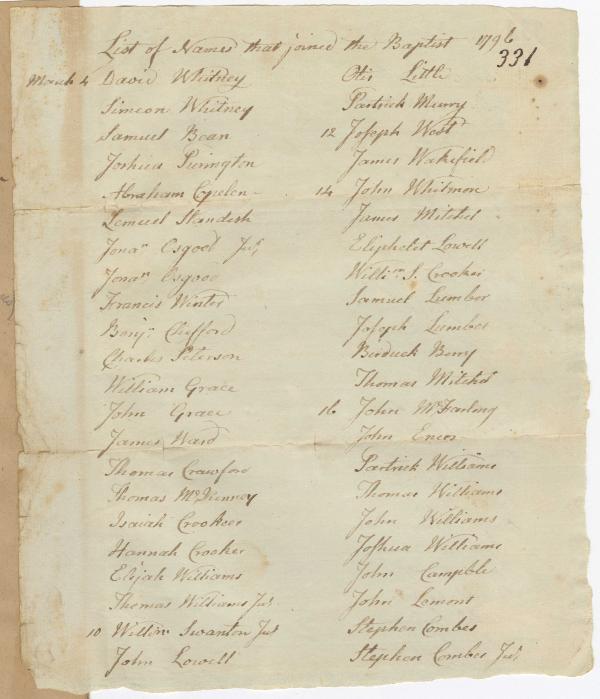 List of Names that joined the Baptist 1796
331
March 4 David Whitney
Simeon Whitney
Samuel Bean
Joshua Purington
Abraham Copelen
Lemuel Standish
Jonan Osgood Jur
Jonan Osgood
Francis Winter
Benjn Clifford
Charles Peterson
William Grace
John Grace
James Ward
Thomas Crawford
Thomas McKenney
Isaiah Crooker
Hannah Crooker
Elijah Williams
Thomas Williams Jur
10 Willim Swanton Jur
John Lowell
Otis Little
Partrick Murry
12 Joseph West
James Wakefield
14 John Whitmon
James Mitchel
Eliphelet Lowell
Willim S. Crooker
Samuel Lumber
Joseph Lumber
Berry
Thomas Mitchel
16 John McFarling
John
Partrick Williams
Thomas Williams
John Williams
Joshua Williams
John Campble
John Lemont
Stephen Combes
Stephen Combes Jur